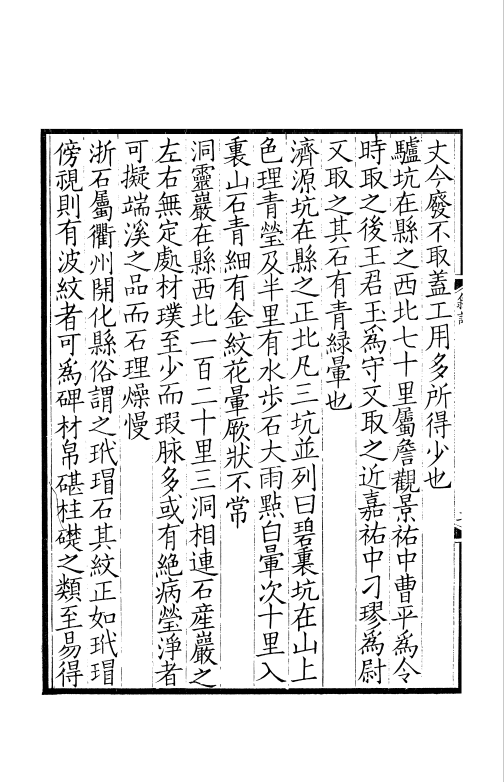 丈今廢不取蓋工用多所得少也
驢坑在縣之西北七十里屬詹觀景祐中曹平為令
時取之後王君玉為守又取之近嘉祐中刁璆為尉
又取之其石有青緑暈也
濟源坑在縣之正北凡三坑並列曰碧裏坑在山上
色理青瑩及半里有水步石大雨點白暈次十里入
裏山石青細有金紋花暈厥狀不常
洞靈巖在縣西北一百二十里三洞相連石產巖之
左右無定處材璞至少而瑕脉多或有絶病瑩淨者
可擬端溪之品而石理燥慢
浙石屬衢州開化縣俗謂之玳瑁石其紋正如玳瑁
傍視則有波紋者可為碑材帛碪柱礎之類至易得